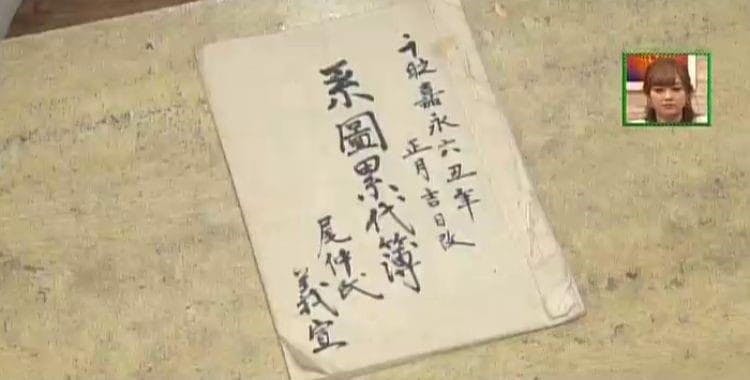 于時嘉永六丑年
正月吉日改
系圖累代簿
尾仲氏
義宣